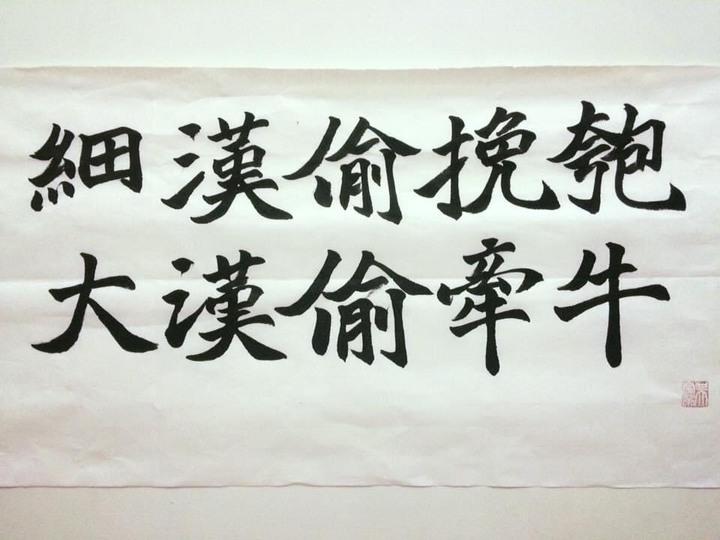 細漢偷挽匏
大漢偷牽牛